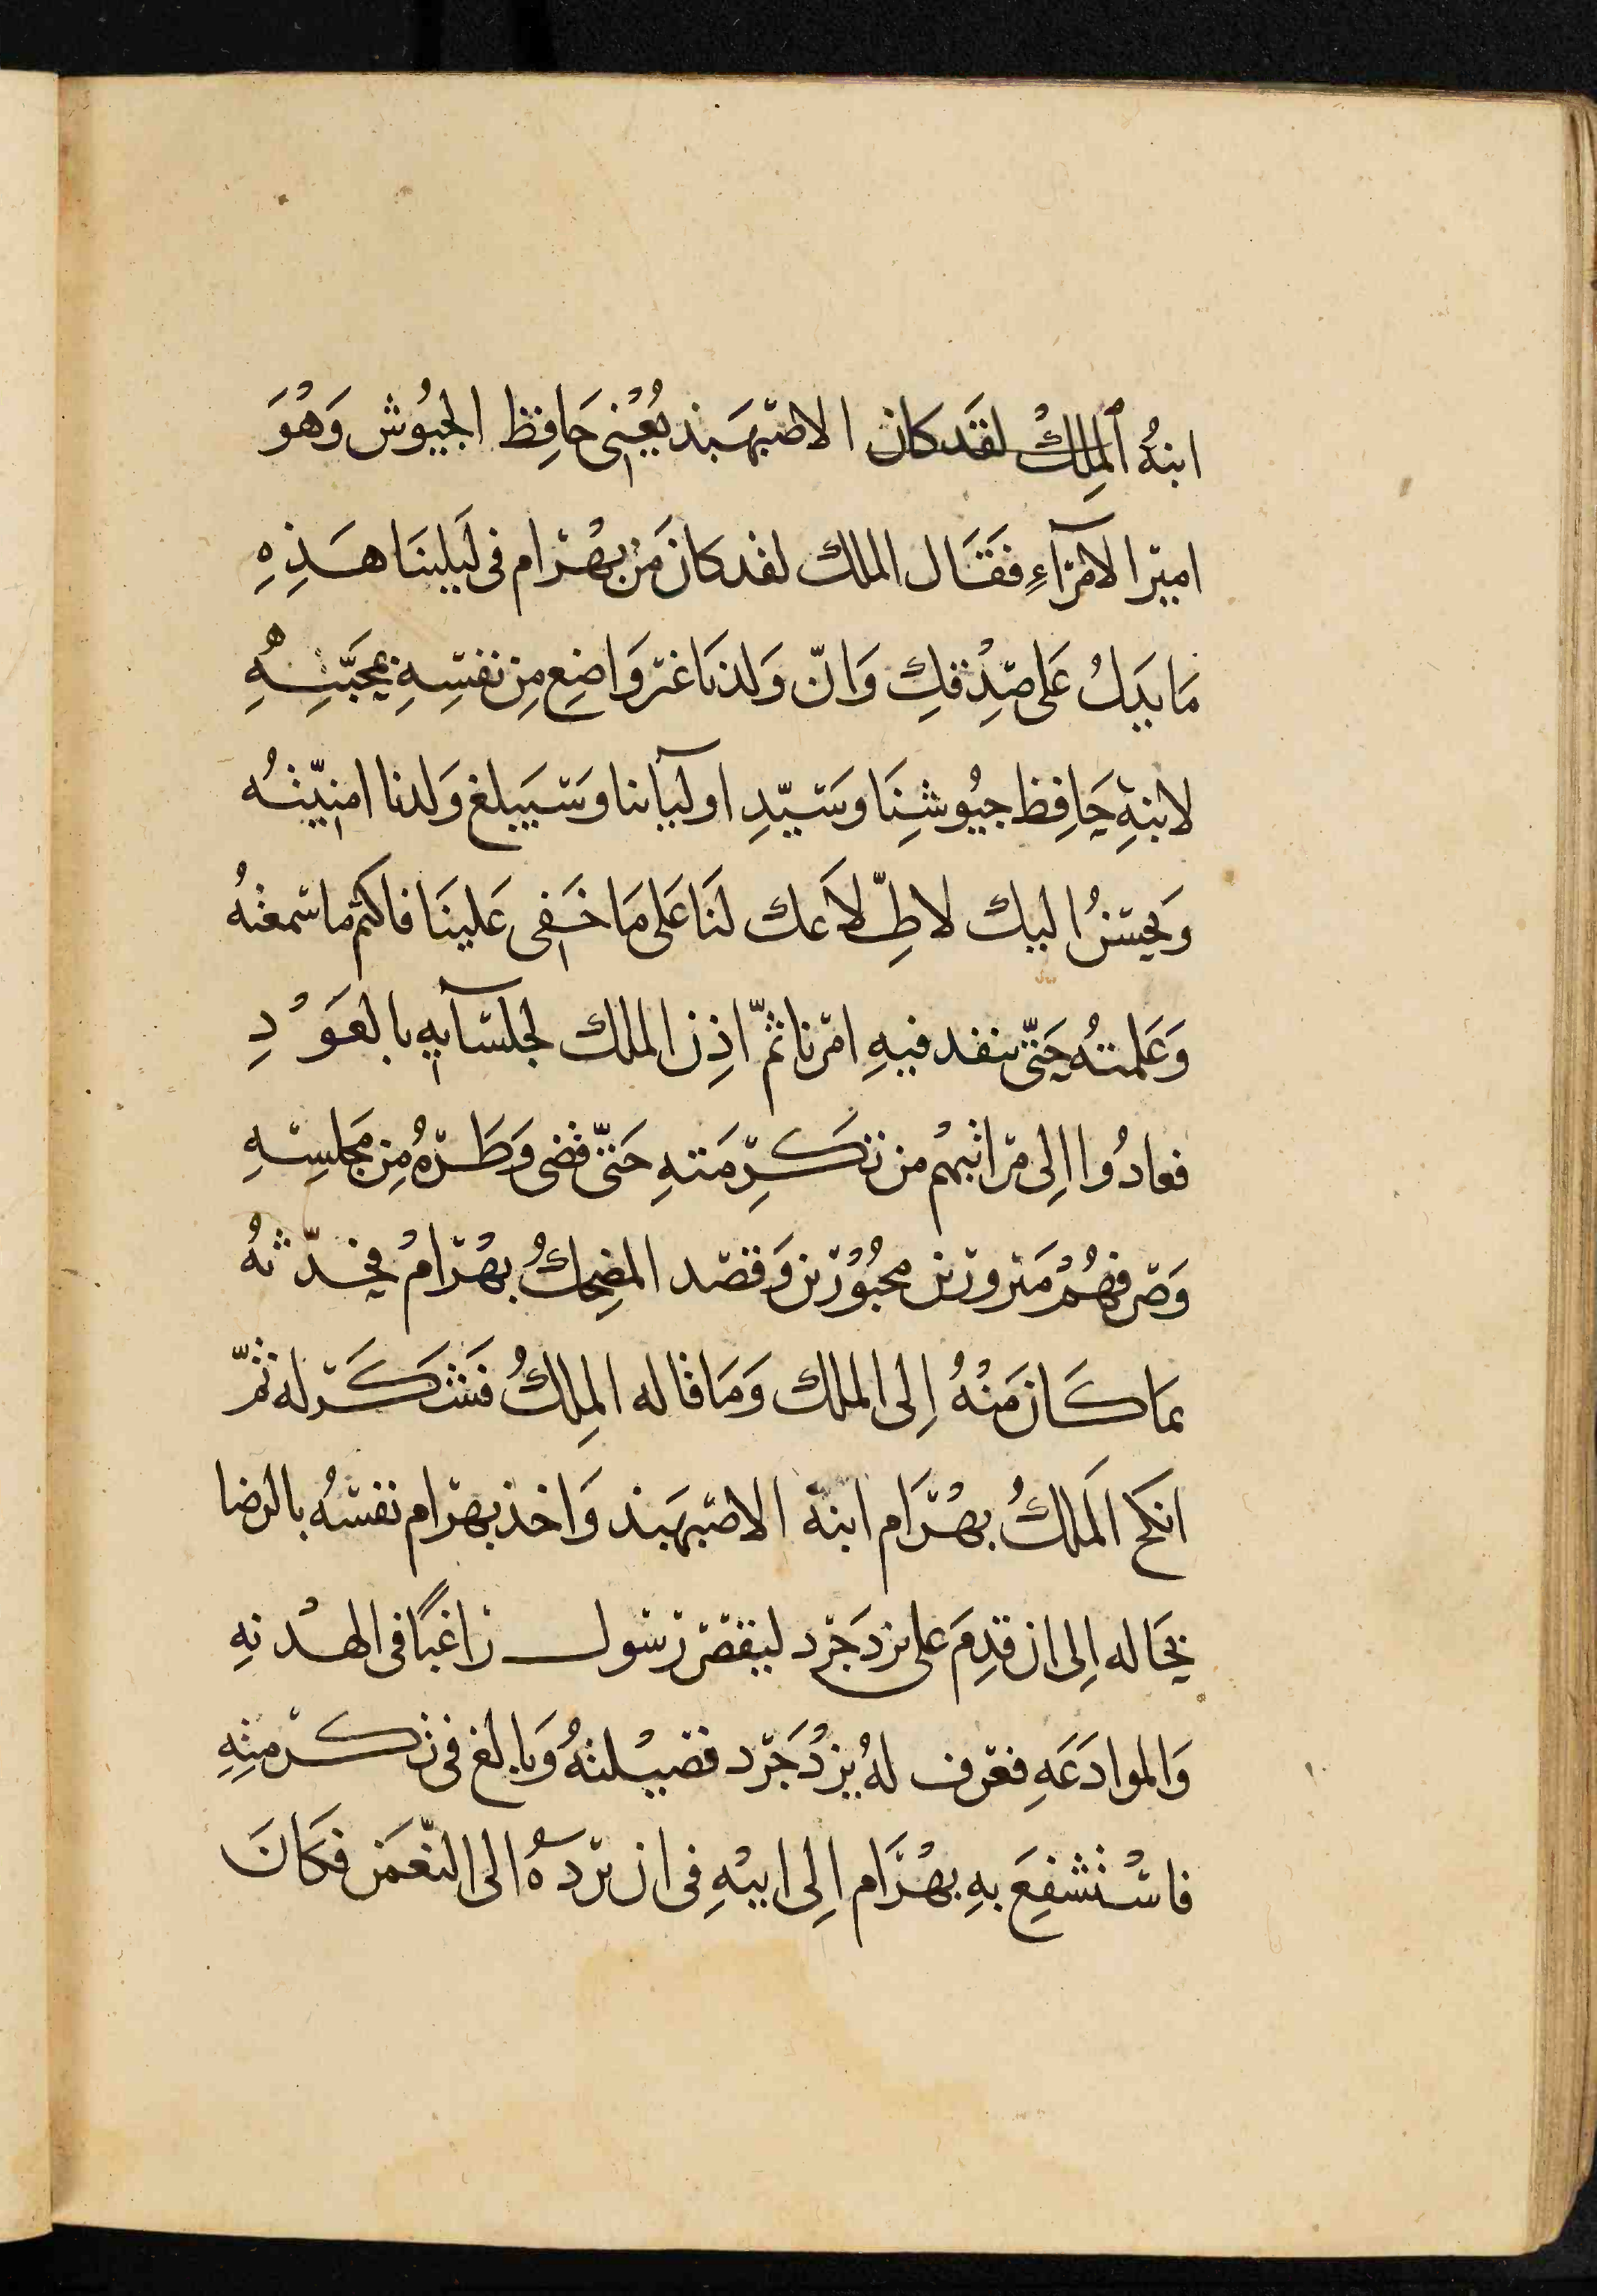 ابنهُ ٱلمِلكْ لقَد كان الاصْبَهَبذ يُعْنِى حَافِظ الجيُوش وَهُوَ
اميرالامَرآءِ فَقَال الملك لقد كان مَن بهْرام فى لَيلينَا هَذِهِ
مَا يَدلُ عَلى صِدْقكِ وَانّ وَلدنَا غيَر وَاضِع مِن نفسِهِ بمحَبَّتِهِ
لابنهِ حَافِظ جيُوشِنَا وسَيّدِ اوليآينا وسَيَبلغ وَلدنا امنيّتهُ
وَيحسنُ اليك لاطِّلاَعك لَنَا عَلى مَا خَفى عَلينَا فاكتم ماسمعتهُ
وَعَلمتهُ حَتّى ينفد فيهِ امرنا ثمّ اذِن الملك لجلسآيهِ بالعَوْدِ
فعادُوا اِلى مراتبهمْ من تكرِمَتهِ حَتىّ قضى وَطَرهُ مِن مَجلسِهِ
وَصَرفهُمْ مَسرورين محبُوْرين وَقصَد المضِحكُ بهْرامُ فحدّثهُ
بما كَان مَنْهُ اِلى الملك وَمَا قاله المِلكُ فَشكَر له ثمّ
انكح اَلملكُ بهْرَام ابنة الاصْبهَبند وَاخذ بهرام نفسَهُ بالرضا
بحَاله اِلى ان قدِمَ على يزدَجَرد ليقصَر رسَول راغبًا فى الهْدنهِ
وَالموادَعَهِ فعَرف لهُ يزدُجَرد فضيْلتهُ وَبالغ فى تكرمتِهِ
فاسْتشفِعَ بهِ بهْرَام اِلى ابيْهِ فى ان يَردهُ الى النّعمَن فكَانَ